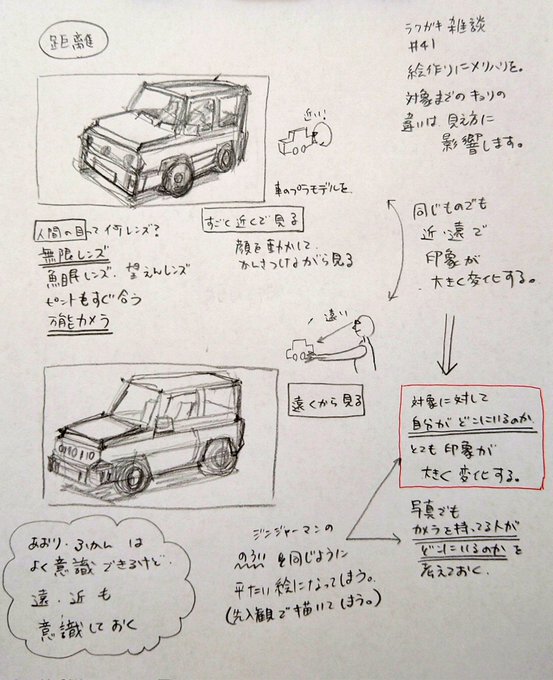 距離
ラクガキ雑談
#41
絵作りにメリハリを。
対象までのキョリの
違いは見え方に
影響します。
近い!
車のプラモデルを
すごく近くで見る
顔を動かして
かんさつしながら見る
人間の目って何レンズ?
無限レンズ
魚眼レンズ、望えんレンズ
ピントもすぐ合う
万能カメラ
同じものでも
近・遠で
印象が
大きく変化する。
遠い!
遠くから見る
対象に対して
自分がどこにいるのか
とても印象が
大きく変化する。
写真でも
カメラを持ってる人が
どこにいるのかを
考えておく。
ジンジャーマンの
を同じように
平たい絵になってしまう。
(先入観で描いてしまう。)
あおり・ふかんは
よく意識できるけど、
遠・近も
意識しておく